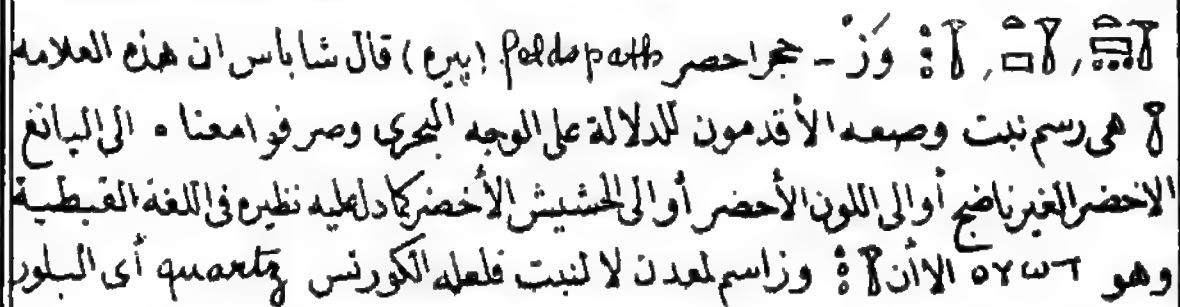 وَزْ - حجر احصر feldspath (بيره) قال شاباس ان هذه العلامه
هى رسم نبت وصعه الأقدمون للدلالة على الوجه البحرى وصرفوا معناه الى اليانع
الاخضر الغير ناضج أو الى اللون الأحضر أو الى الحشيش الأخضر كما دل عليه نظيره فى اللغة القبطية
وهو ⲟⲩⲱⲧ الا أن وز اسم لمعدن لا لنبت فلعله الكورتس quartz أى البلور